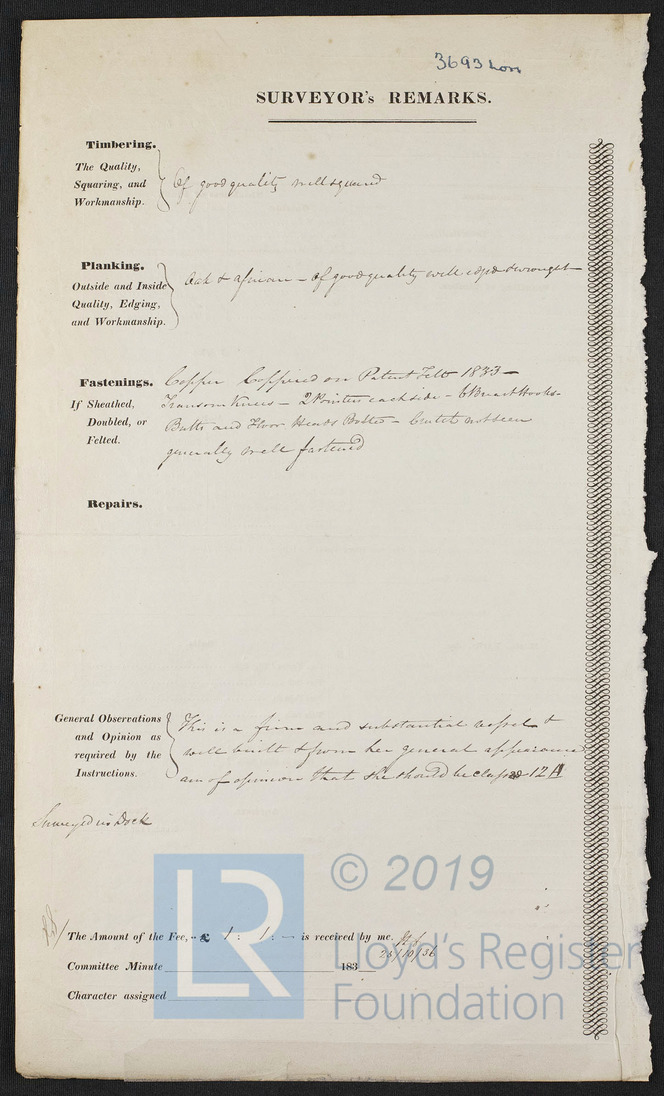 3693 Lon
SURVEYOR's REMARKS.
Timbering.
The Quality,
Squaring, and
Workmanship.
Of good quality well squared
Planking.
Outside and Inside
Quality, Edging,
and Workmanship.
Oak & African - of good quality well edged & wrought
Fastenings.
If Sheathed,
Doubled, or
Felted.
Copper Coppered on Patent Felt 1833 -
Transom Knees - 2 Pointers each side - 6 Breast Hooks -
Butts and Floor Heads Bolted - Crutch not seen
generally well fastened
Repairs.
General Observations
and Opinion as
required by the
Instructions.
This is a firm and substantial vessel &
well built & from her general appearance
am of opinion that she should be classed 12 A
Surveyed in Dock
The Amount of the Fee, - £ 1 : 1 : - is received by me.
25/10/36
Committee Minute 183
Character assigned
© 2019
LR
Lloyd's Register
Foundation